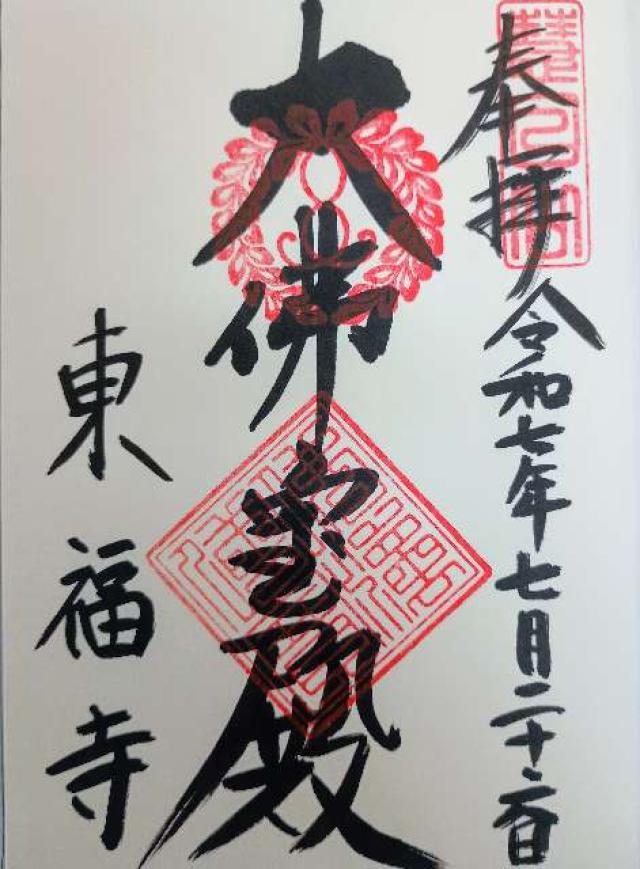 奉拝
令和七年七月二十六日
大佛宝殿
東福寺